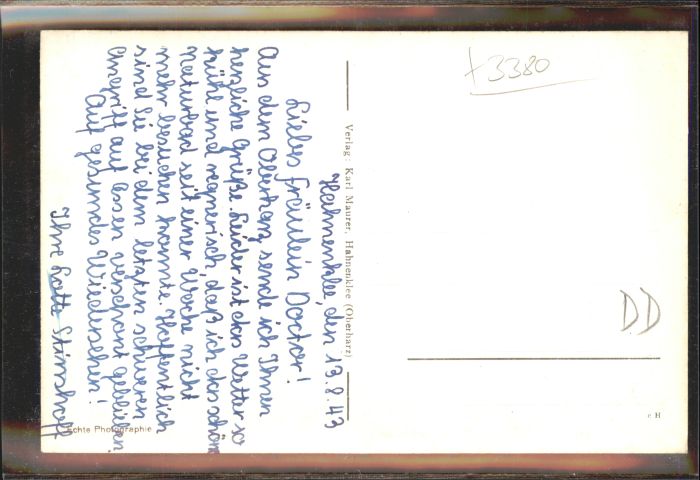 Hahnenklee, den 13.8.43
Liebes Fräulein Doctor!
Aus dem Oberharz sende ich Ihnen
herzliche Grüße. Leider ist das Wetter so
kühl und regnerisch, daß ich das schöne
Naturbad seit einer Woche nicht
mehr besuchen konnte. Hoffentlich
sind Sie bei dem letzten schweren
Angriff auf Essen verschont geblieben.
Auf gesundes Wiedersehen!
Ihre Lotte Stimshoff
Verlag: Karl Maurer, Hahnenklee (Oberharz)
Echte Photographie
+3380
DD